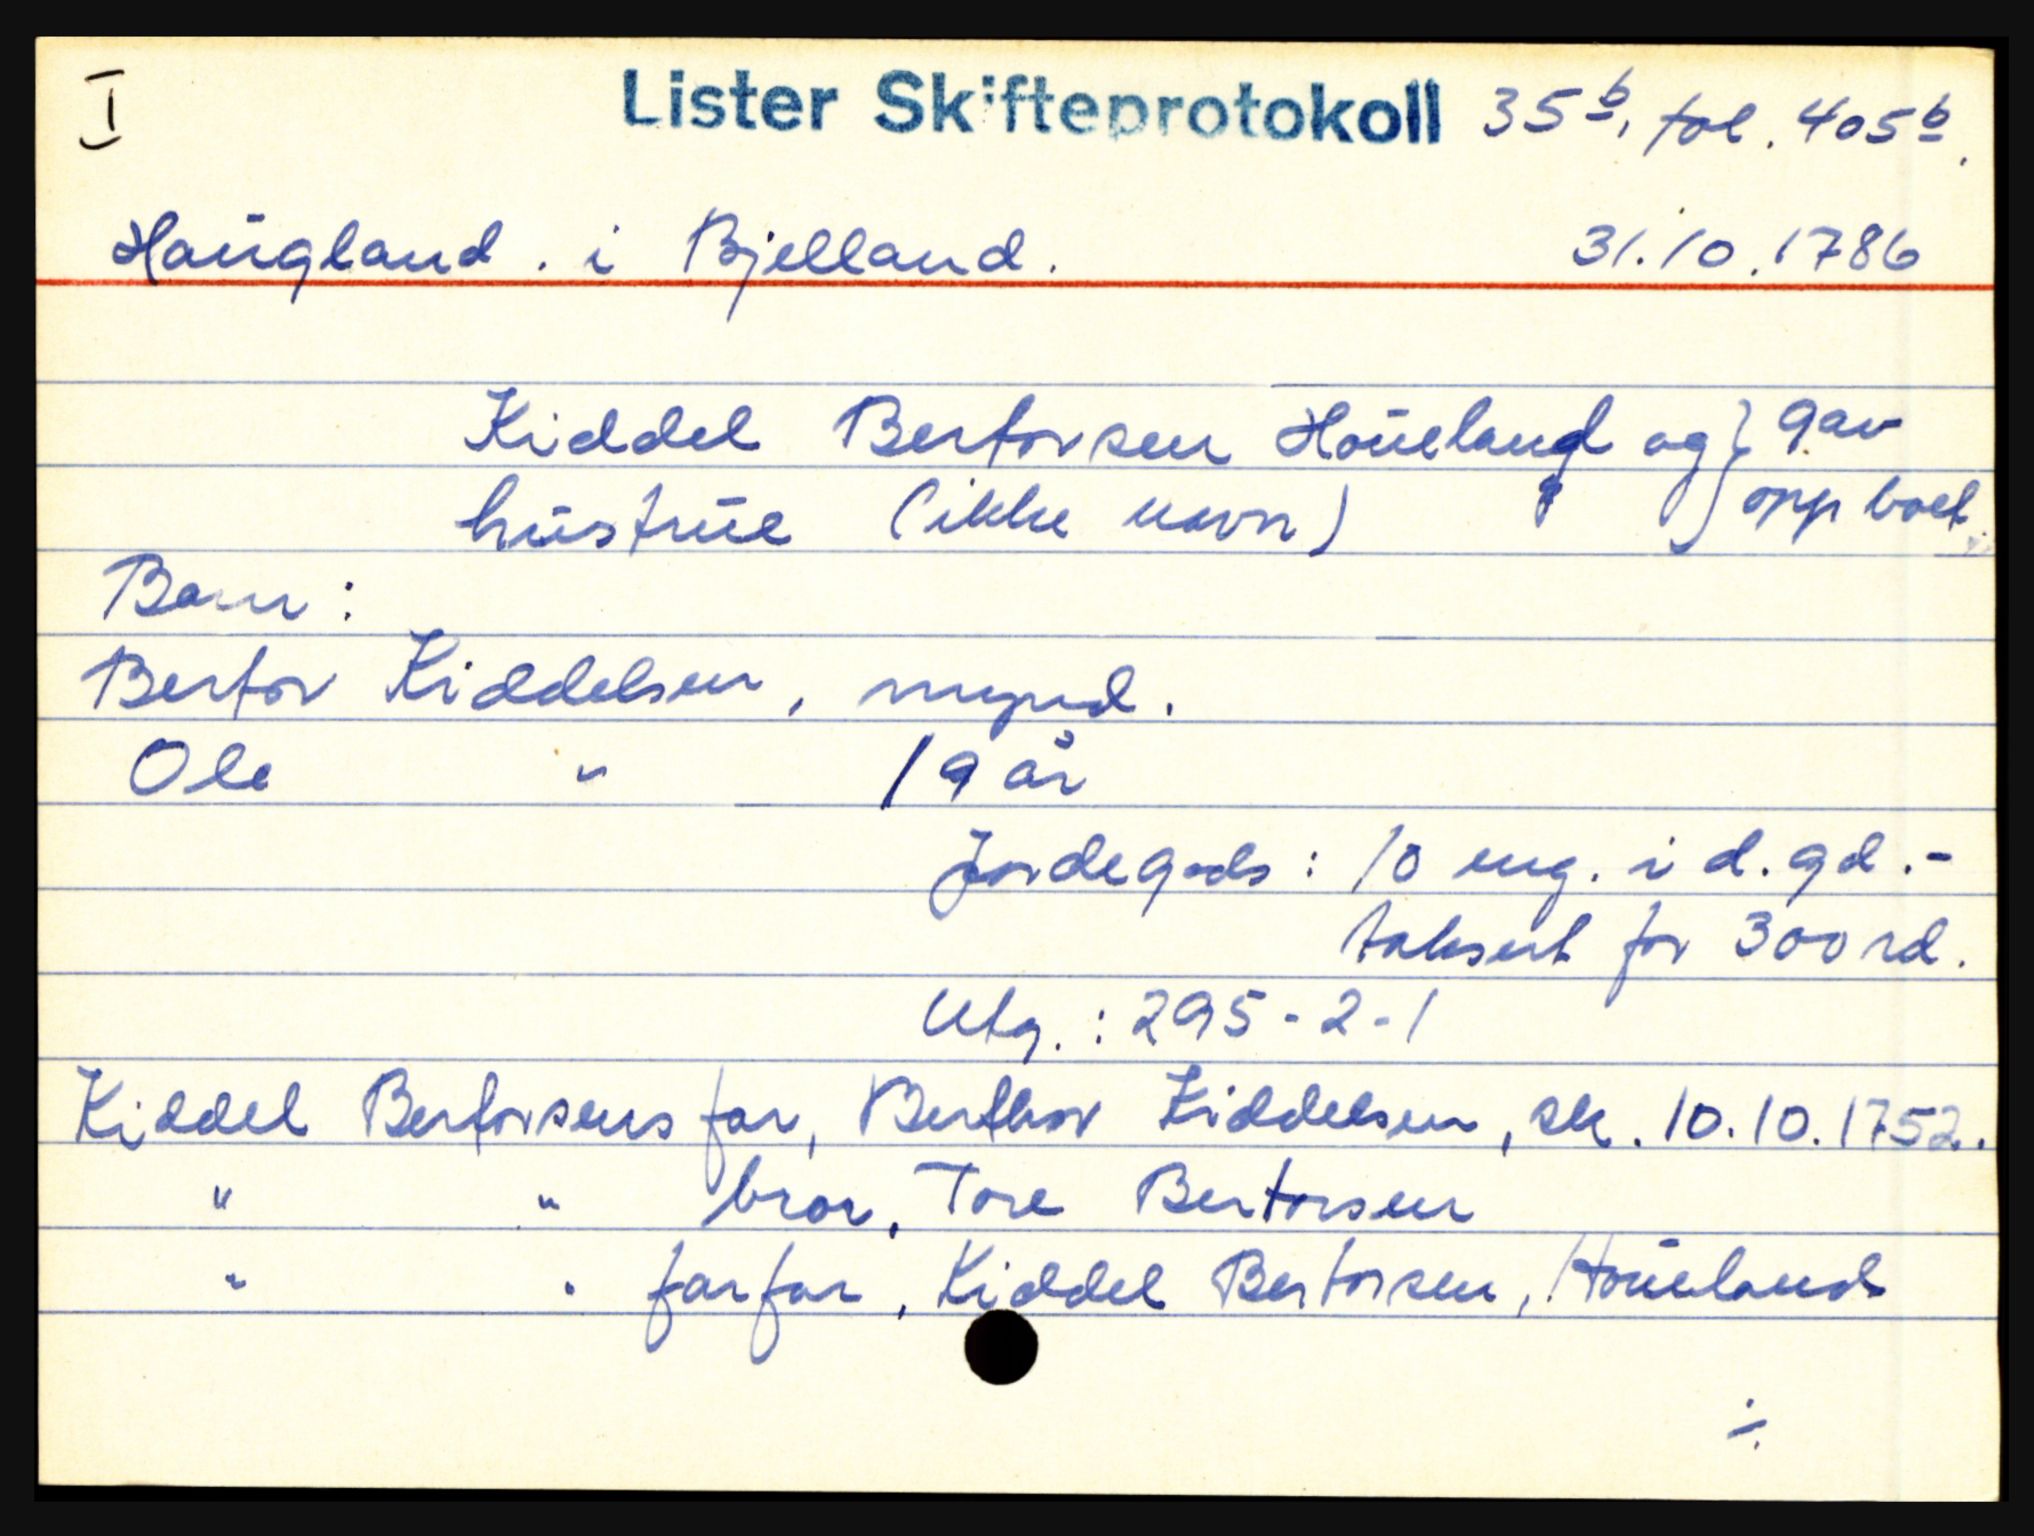 I Lister Skifteprotokoll 35b, fol. 405b.
Haugland. i Bjelland. 31.10.1786
Kiddel Bertorsen Houeland og } gav
hustrue (ikke navn) } opp boet.
Barn:
Bertor Kiddelsen, mynd.
Ole " 19 år
Jordegods: 10 eng. i d. gd.-
taksert for 300 rd.
Utg.: 295-2-1
Kiddel Bertorsens far, Berthor Kiddelsen, sk. 10.10.1752.
" " bror, Tore Bertorsen
" " farfar, Kiddel Bertorsen, Houeland
./.